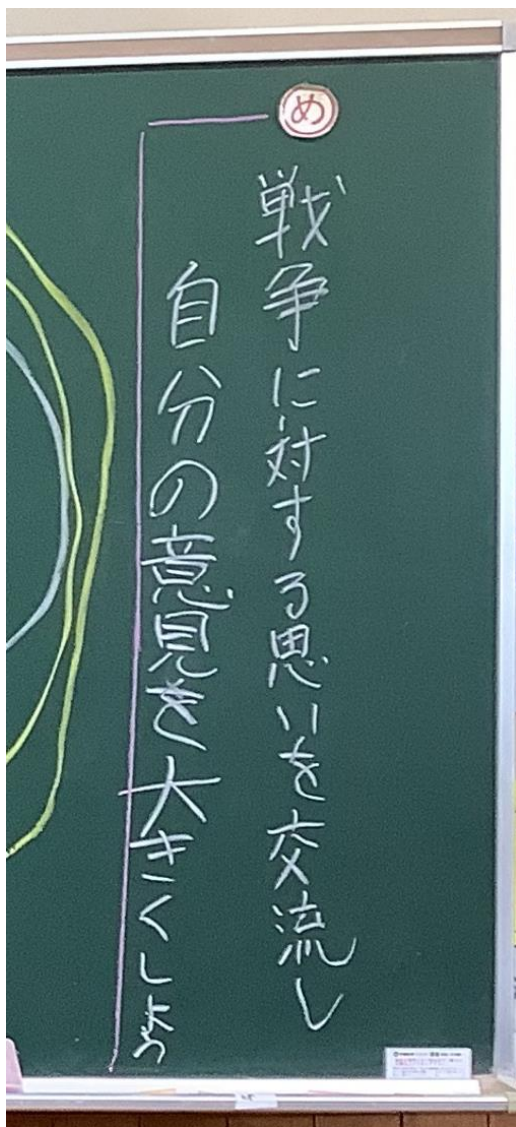 め
戦争に対する思いを交流し
自分の意見を大きくしよう